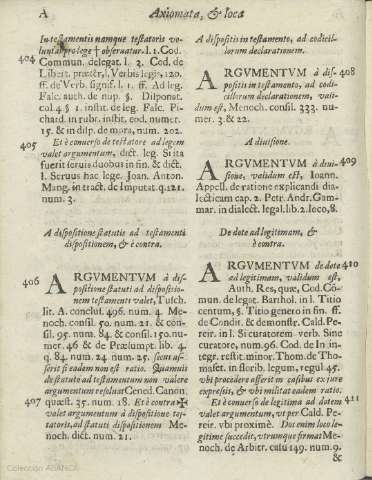 A Axiomata, & loca
In testamentis namque testatoris vo-
luntas pro lege † obseruatur. l. 1. Cod.
404 Commun. delegat. l. 3. Cod. de
Libert. præter. l. Verbis legis, 120.
ff. de Verb. signif. l. 1. ff. Ad leg.
Falc. auth. de nup. §. Disponat.
col. 4. § 1. instit. de leg. Falc. Pi-
chard. in rubr. instit. cod. numer.
15. & in disp. de mora, num. 202.
405 Et è conuerso de testatore ad legem
valet argumentum, dict. leg. Si ita
fuerit seruis duobus in fin. & dict.
l. Seruus hac lege. Ioan. Anton.
Mang. in tract. de Imputat. q. 121.
num. 3.
A dispositione statuti ad testamenti
dispositionem, & è contra.
406 ARGVMENTVM à dis-
positione statuti ad dispositio-
nem testamenti valet, Tusch.
lit. A. conclus. 496. num. 4. Me-
noch. consil. 50. num. 21. & con-
sil. 95. num. 84. & consil. 150. nu-
mer. 46 & de Præsumpt. lib. 4.
q. 84. num. 24. num. 25. secus as-
serit si eadem non est ratio. Quamuis
de statuto ad testamentum non valere
argumentum resoluat Cened. Canon.
407 quæst. 35. num. 18. Et è contra
valet argumentum à dispositione tes-
tatoris, ad statuti dispositionem Me-
noch. dict. num. 21.
A dispositis in testamento, ad codicil-
lorum declarationem.
ARGVMENTVM à dis- 408
positis in testamento, ad codi-
cillorum declarationem, vali-
dum est, Menoch. consil. 333. nu-
mer. 3. & 22.
A diuisione.
ARGVMENTVM à diui- 409
sione, validum est, Ioann.
Appell. de ratione explicandi dia-
lecticam cap. 2. Petr. Andr. Gam-
mar. in dialect. legal. lib. 2. loco, 8.
De dote ad legitimam, &
è contra.
ARGVMENTVM de dote 410
ad legitimam, validum est,
Auth. Res, quæ, Cod. Cõ-
mun. de legat. Barthol. in l. Titio
centum, §. Titio genero in fin. ff.
de Condit. & demonstr. Cald. Pe-
reir. in l. Si curatorem verb. Sine
curatore, num. 96. Cod. de In in-
tegr. restit. minor. Thom. de Tho-
masset. in florib. legum, regul. 45.
vbi procedere asserit in casibus ex iure
expressis, & vbi militat eadem ratio.
Et è conuerso de legitima ad dotem 411
valet argumentum, vt per Cald. Pe-
reir. vbi proximè. Dos enim loco le-
gitimæ succedit, vtrumque firmat Me-
noch. de Arbitr. casu 149. num. 9.
&
Colección ABANCA